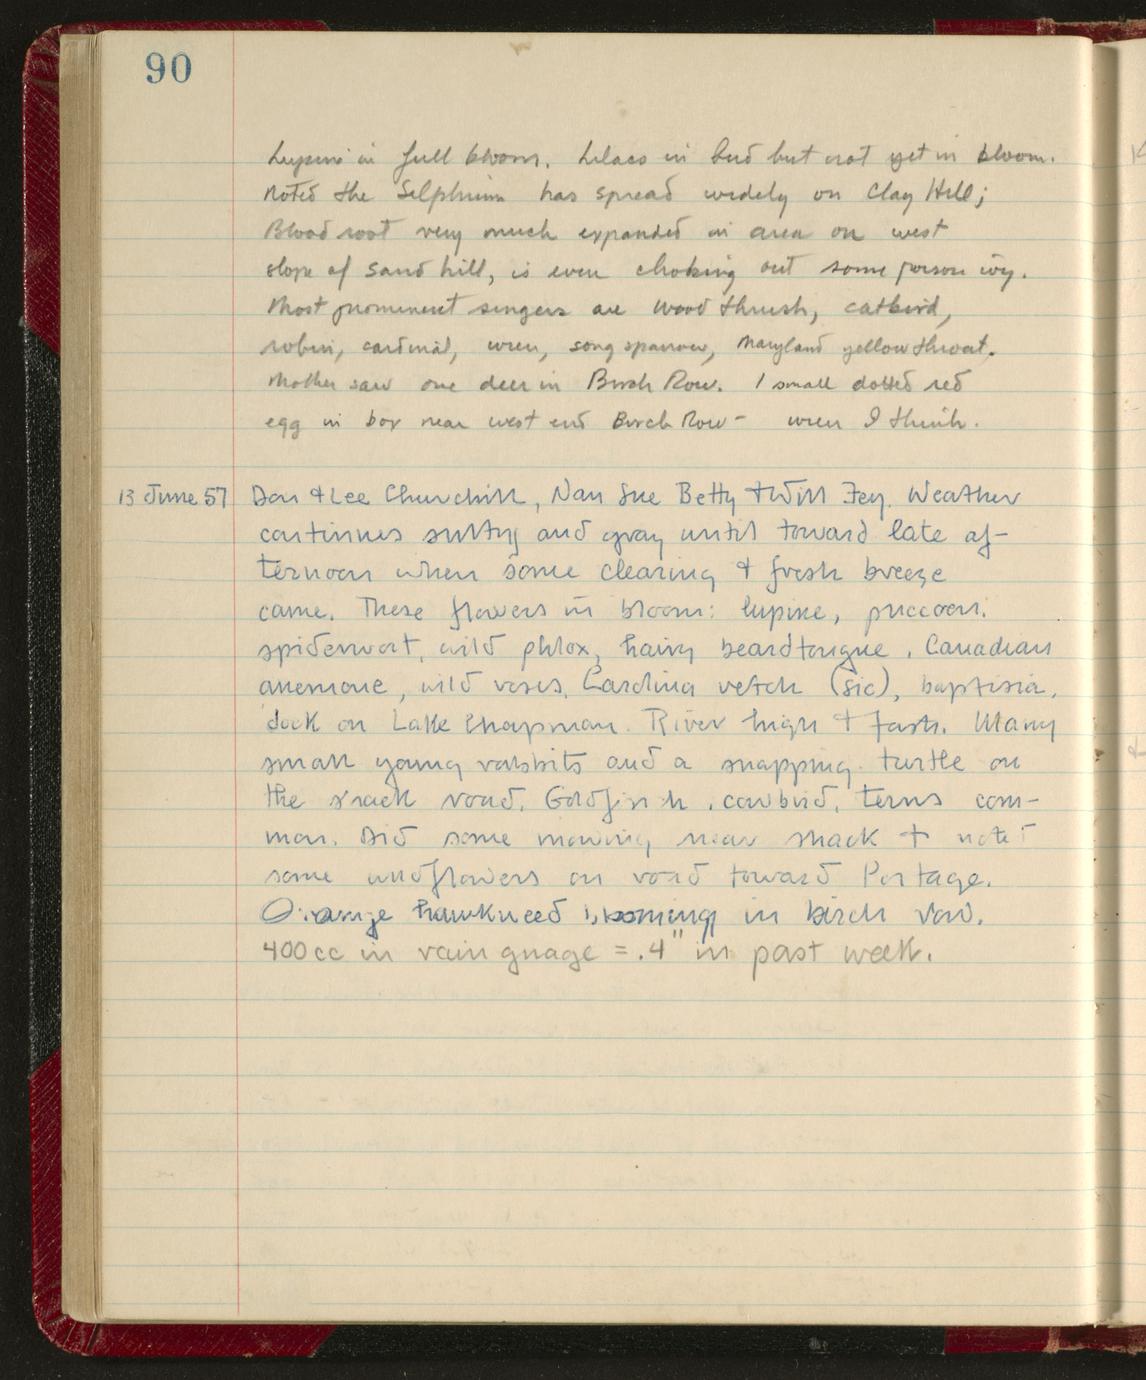 90
Lupine in full bloom. Lilacs in bud but not yet in bloom.
Noted the Silphium has spread widely on Clay Hill;
Blood root very much expanded in area on west
slope of sand hill, is even choking out some poison ivy.
Most prominent singers are wood thrush, catbird,
robin, cardinal, wren, song sparrow, Maryland yellowthroat.
Mother saw one deer in Birch Row. 1 small dotted red
egg in box near west end Birch Row - wren I think.
13 June 57 Don + Lee Churchill, Nan Sue Betty + Will Fey. Weather
continues sultry and gray until toward late af-
ternoon when some clearing + fresh breeze
came. These flowers in bloom: lupine, puccoon.
spiderwort, wild phlox, hairy beardtongue, Canadian
anemone, wild roses, Carolina vetch (sic), baptisia,
dock on Lake Chapman. River high + fast. Many
small young rabbits and a snapping turtle on
the shack road. Goldfinch, cowbird, terns com-
mon. Did some mowing near shack + noted
some wildflowers on road toward Portage.
Orange hawkweed blooming in birch row.
400 cc in rain guage = .4" in past week.